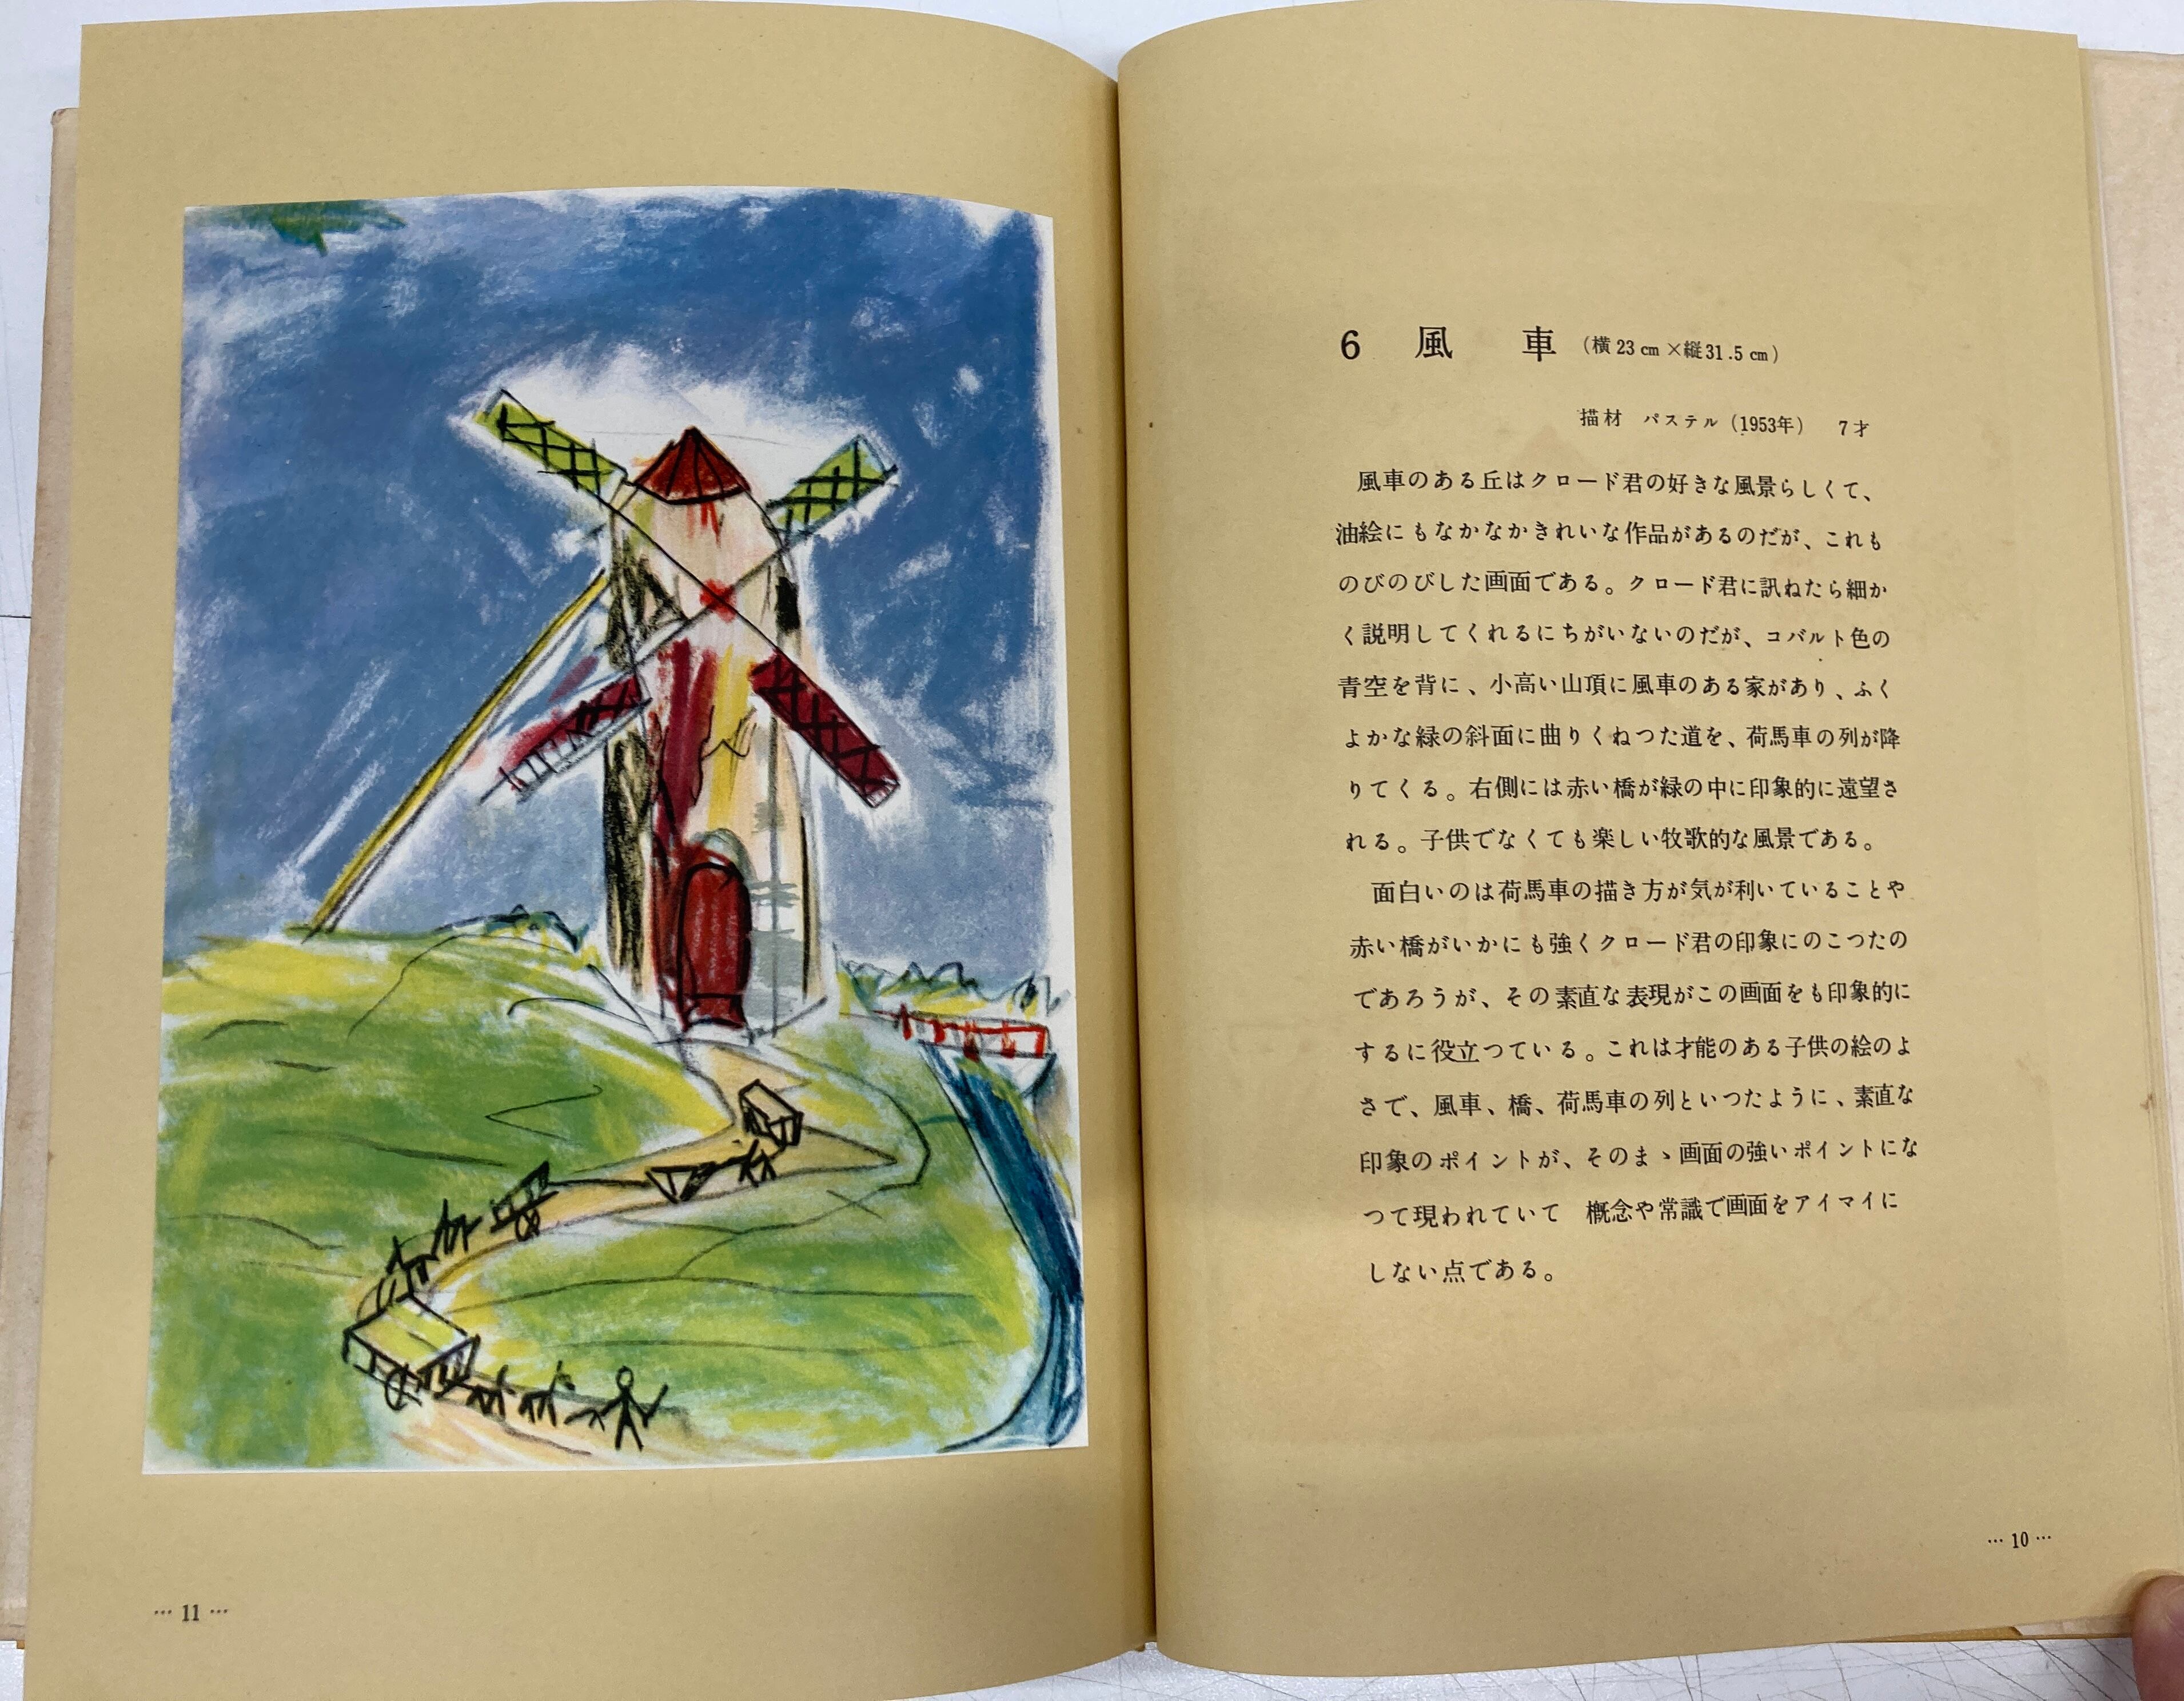 6 風 車 (横23cm×縦31.5cm)
描材 パステル(1953年) 7才
風車のある丘はクロード君の好きな風景らしくて、
油絵にもなかなかきれいな作品があるのだが、これも
のびのびした画面である。クロード君に訊ねたら細か
く説明してくれるにちがいないのだが、コバルト色の
青空を背に、小高い山頂に風車のある家があり、ふく
よかな緑の斜面に曲りくねつた道を、荷馬車の列が降
りてくる。右側には赤い橋が緑の中に印象的に遠望さ
れる。子供でなくても楽しい牧歌的な風景である。
面白いのは荷馬車の描き方が気が利いていることや
赤い橋がいかにも強くクロード君の印象にのこつたの
であろうが、その素直な表現がこの画面をも印象的に
するに役立つている。これは才能のある子供の絵のよ
さで、風車、橋、荷馬車の列といつたように、素直な
印象のポイントが、そのまゝ画面の強いポイントにな
つて現われていて 概念や常識で画面をアイマイに
しない点である。
… 10 …
… 11 …